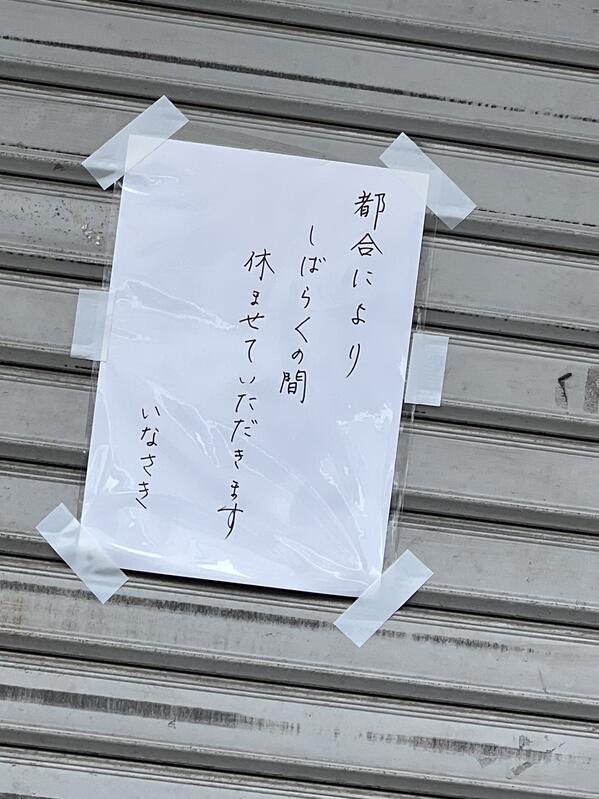 都合により
しばらくの間
休ませていただきます
いなさき